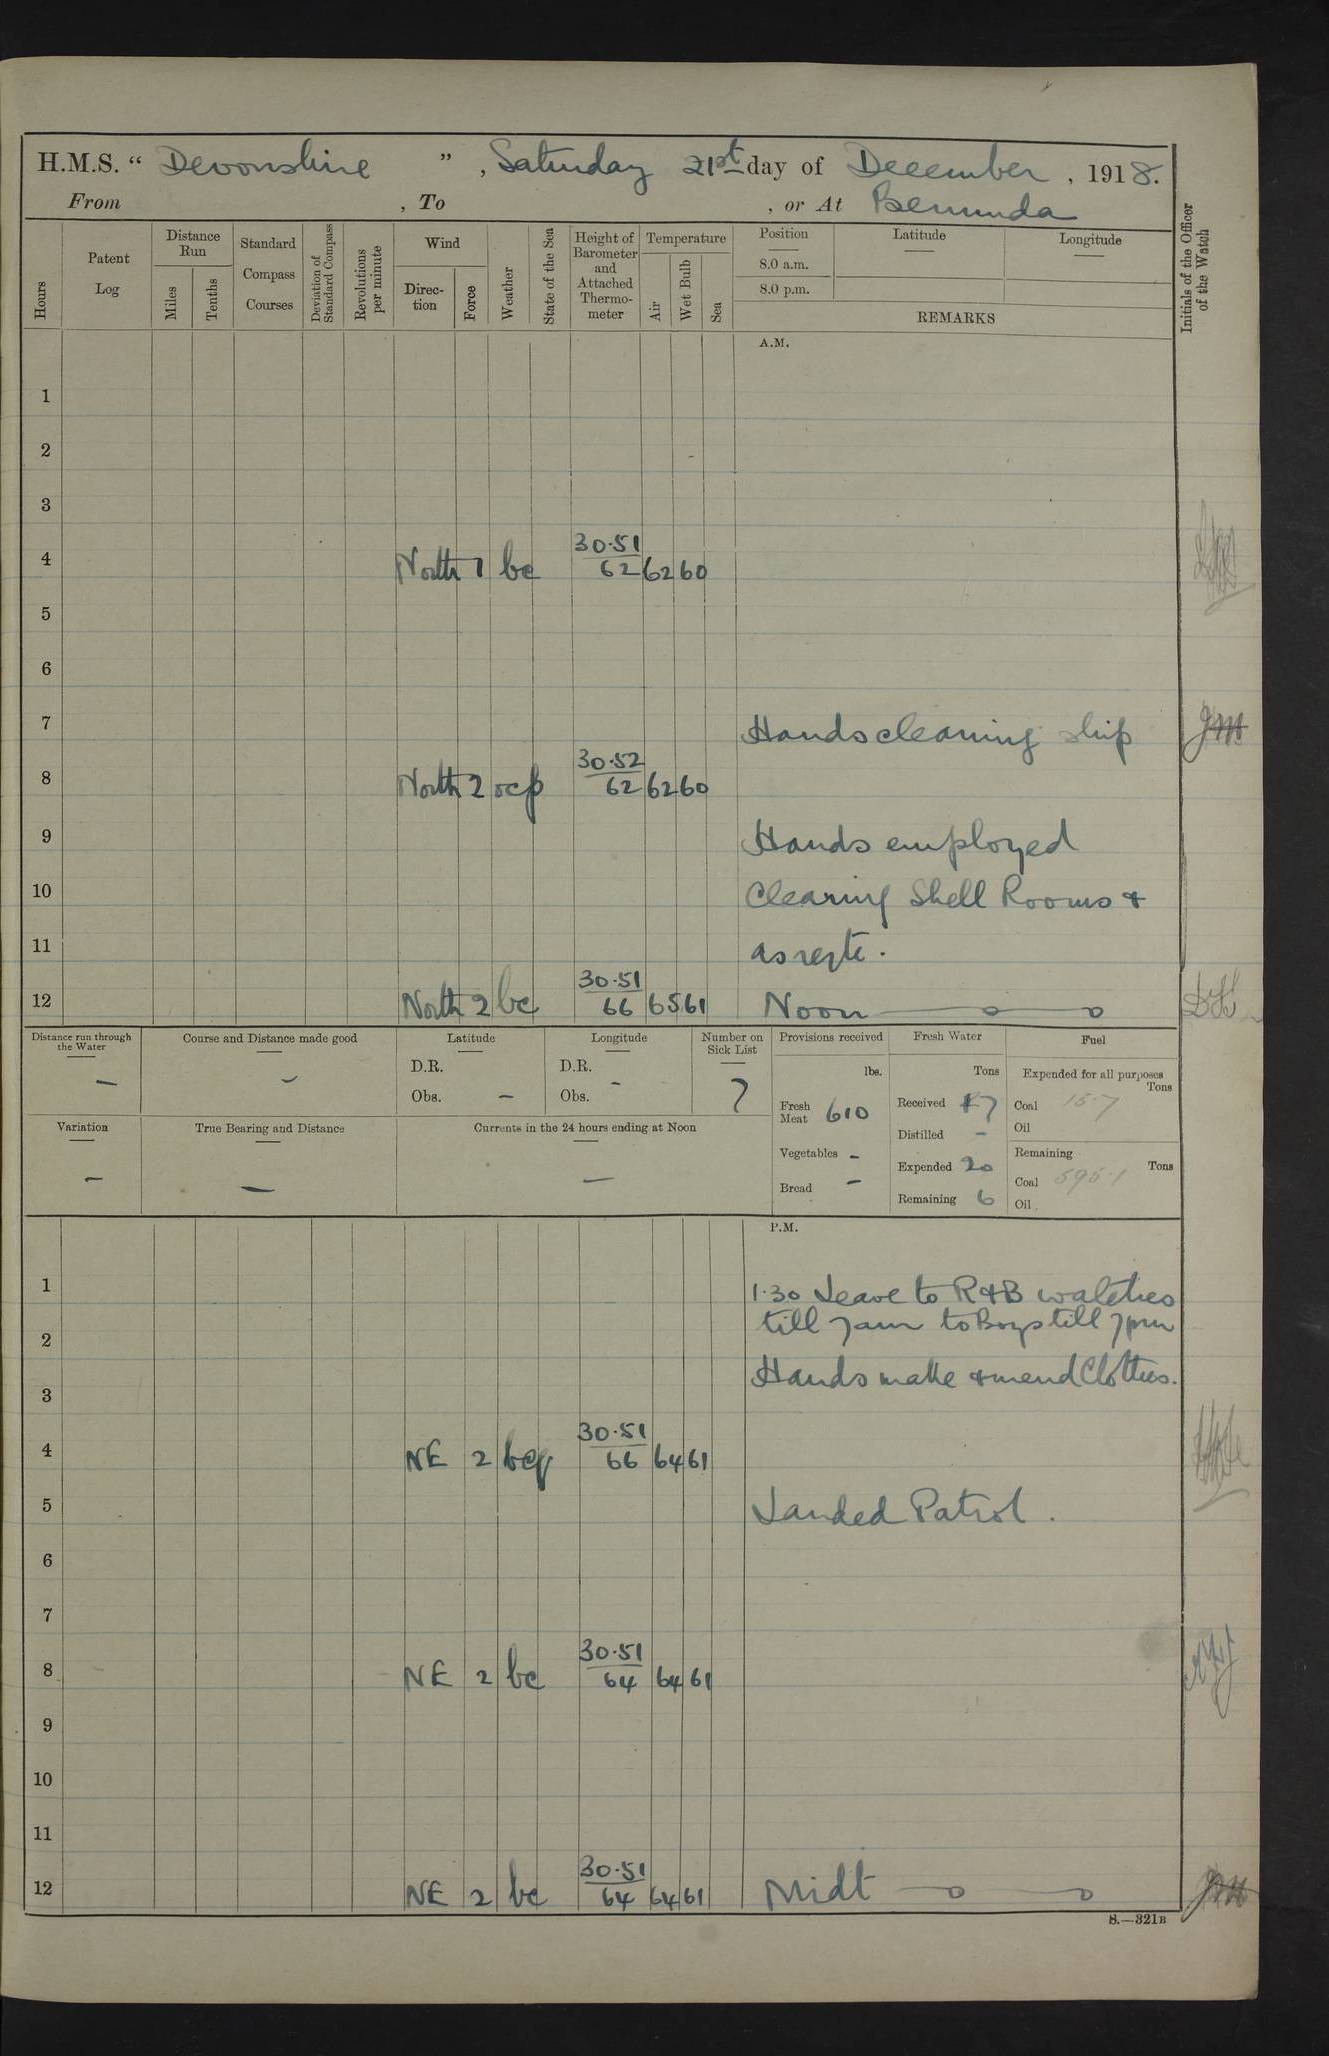 H.M.S. “ Devonshire ” , Saturday 21st day of December , 1918.
From , To , or At Bermuda
Hours
Patent Log
Distance Run
Miles
Tenths
Standard Compass Courses
Deviation of Standard Compass
Revolutions per minute
Wind
Direc-tion
Force
Weather
State of the Sea
Height of Barometer and Attached Thermo-meter
Temperature
Air
Wet Bulb
Sea
Position
8.0 a.m.
8.0 p.m.
Latitude
Longitude
REMARKS
Initials of the Officer of the Watch
A.M.
1
2
3
30.51
4 North 1 bc 62 62 60
5
6
7 Hands cleaning ship
30.52
8 North 2 ocp 62 62 60
9 Hands employed
10 Clearing Shell Rooms &
11 as reqte.
30.51
12 North 2 bc 66 65 61 Noon
Distance run through the Water
Course and Distance made good
Latitude
D.R.
Obs. –
Longitude
D.R.
Obs. –
Number on Sick List
7
Provisions received
lbs.
Fresh Meat 610
Vegetables –
Bread –
Fresh Water
Tons
Received 17
Distilled –
Expended 20
Remaining 6
Fuel
Expended for all purposes
Tons
Coal 15.7
Oil
Remaining
Tons
Coal 595.1
Oil
Variation
–
True Bearing and Distance
–
Currents in the 24 hours ending at Noon
–
P.M.
1 1.30 Leave to R&B watches
2 till 7am to Boys till 7pm
3 Hands make & mend Clothes.
30.51
4 NE 2 bcq 66 64 61
5 Landed Patrol.
6
7
30.51
8 NE 2 bc 64 64 61
9
10
11
30.51
12 NE 2 bc 64 64 61 Midt
S.—321B